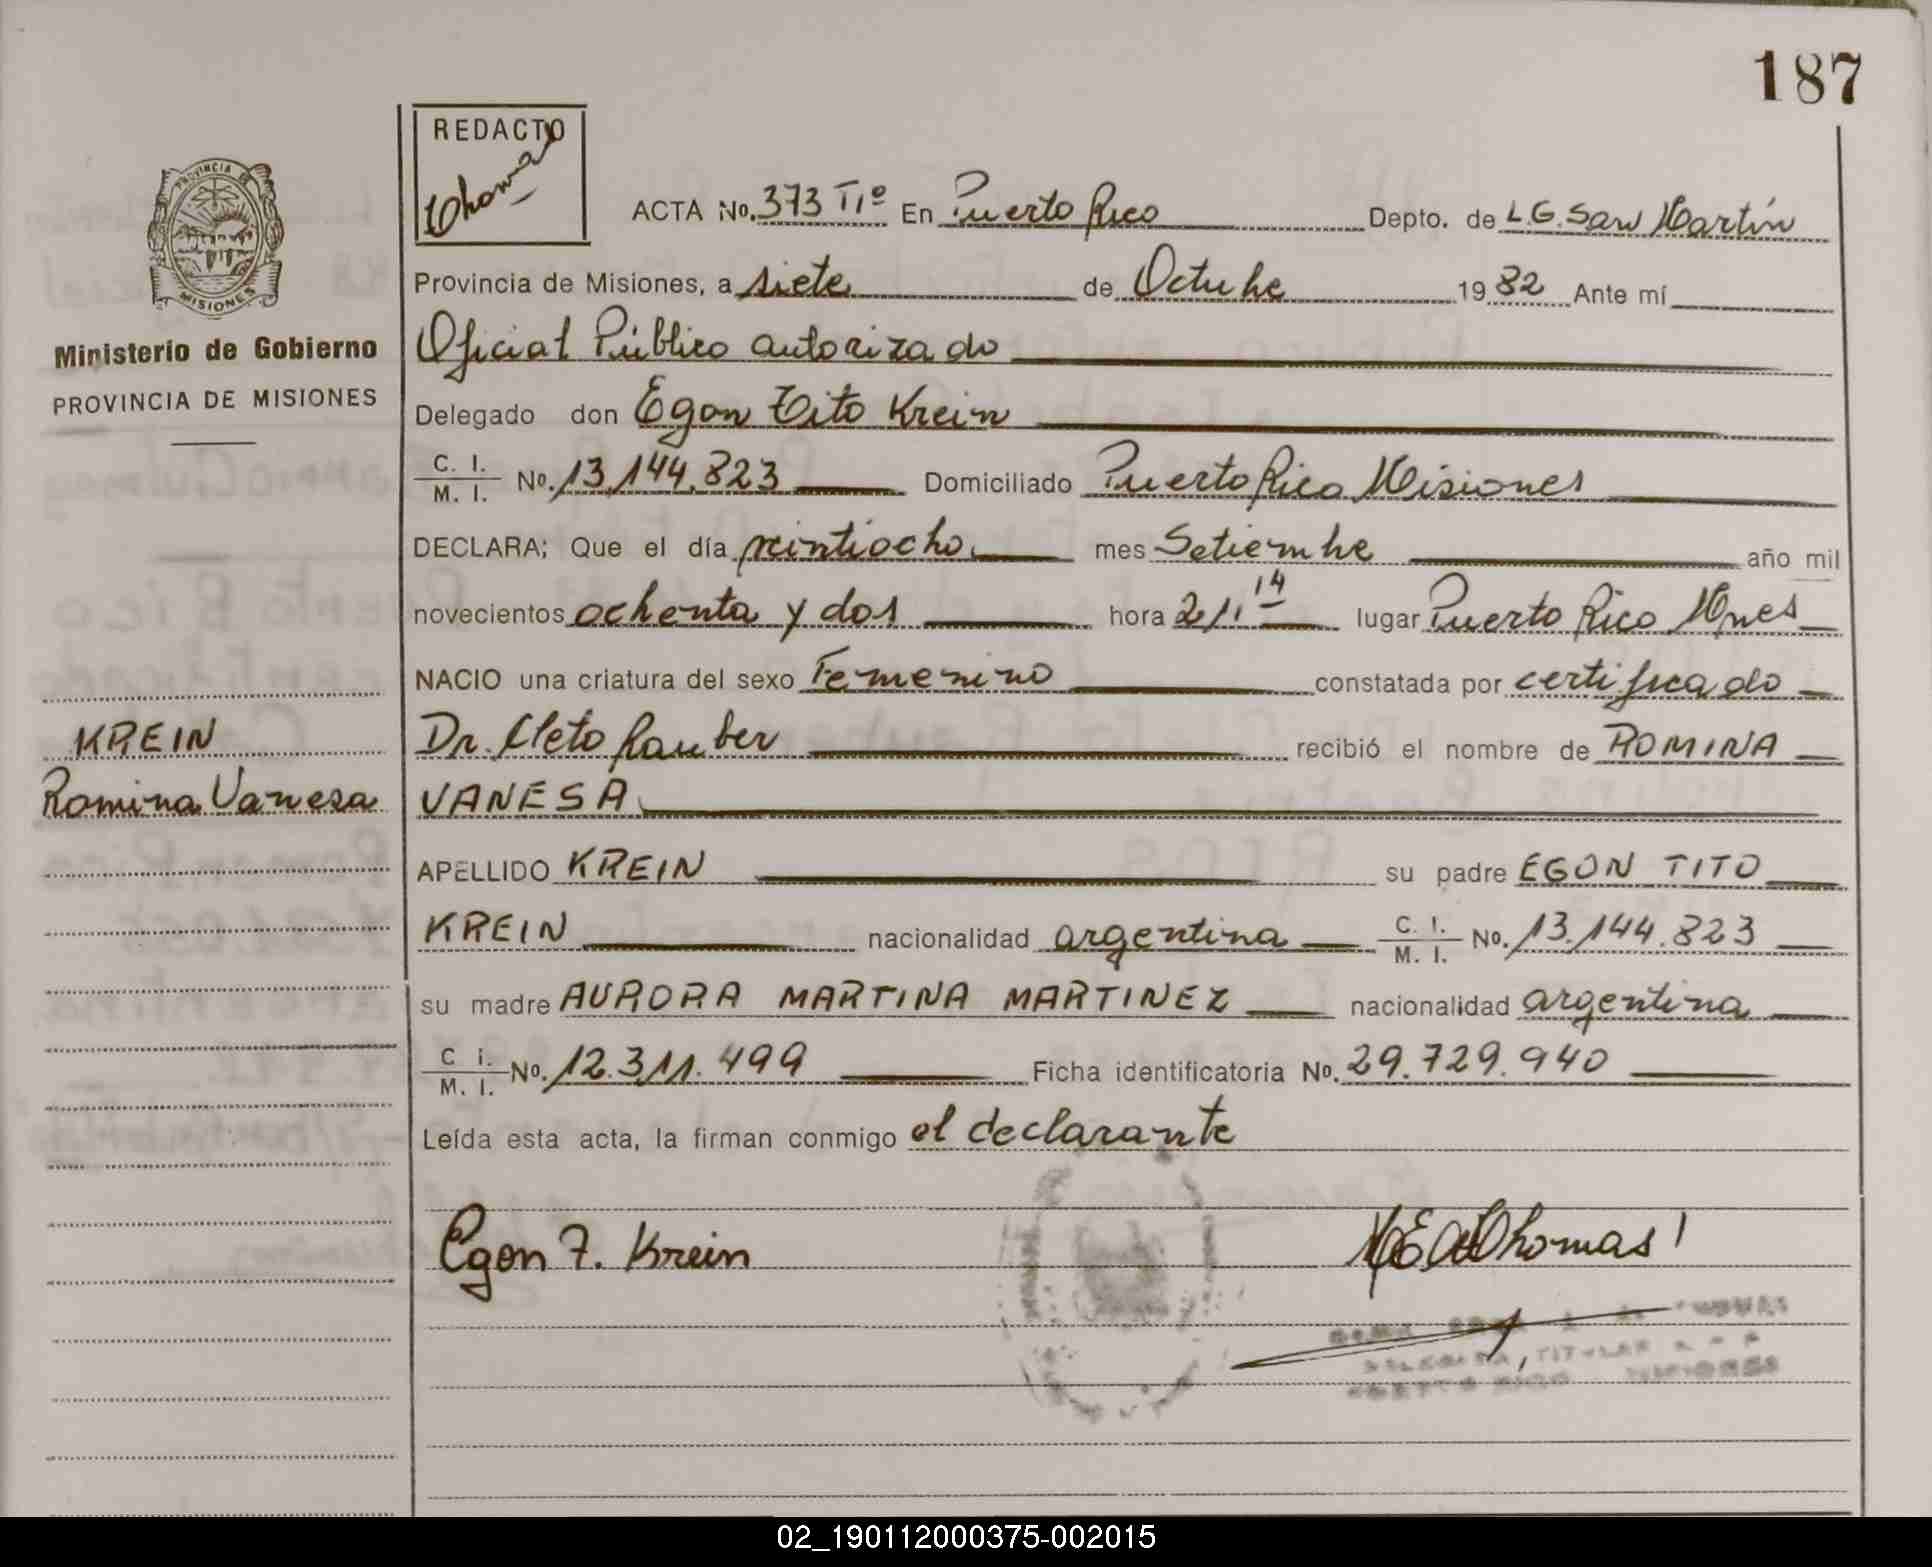 187
REDACTO
Thomas
PROVINCIA DE
MISIONES
Ministerio de Gobierno
PROVINCIA DE MISIONES
ACTA No. 373 Tiº En Puerto Rico Depto. de L.G. San Martín
Provincia de Misiones, a siete de Octubre 1982 Ante mí
Oficial Público autorizado
Delegado don Egon Tito Krein
C. I. / M. I. No. 13.144.823 Domiciliado Puerto Rico Misiones
DECLARA; Que el día veintiocho mes Setiembre año mil
novecientos ochenta y dos hora 21.14 lugar Puerto Rico Mnes
NACIO una criatura del sexo Femenino constatada por certificado
Dr. Cleto Rauber recibió el nombre de ROMINA
VANESA
KREIN
Romina Vanesa
APELLIDO KREIN su padre EGON TITO
KREIN nacionalidad argentina C. I. / M. I. No. 13.144.823
su madre AURORA MARTINA MARTINEZ nacionalidad argentina
C i. / M. I. No. 12.311.499 Ficha identificatoria No. 29.729.940
Leída esta acta, la firman conmigo el declarante
Egon T. Krein
Thomas
TITULAR
PUERTO RICO MISIONES
02_190112000375-002015